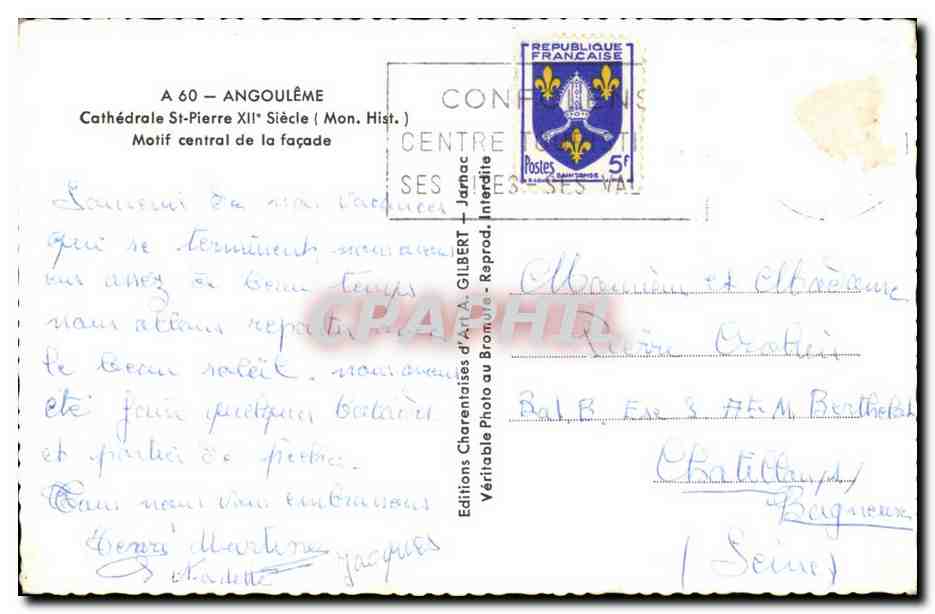 A 60 — ANGOULÊME
Cathédrale St-Pierre XIIe Siècle ( Mon. Hist. )
Motif central de la façade
REPUBLIQUE
FRANÇAISE
Postes 5F
SAINTONGE
CONFOLENS
CENTRE
SES SITES - SES VAL
Souvenir de nos vacances
qui se terminent, nous avons
eu assez de beau temps
nous allons repartir avec
le beau soleil. nous avons
été faire quelques balades
et parties de pêche.
Tous nous vous embrassons
Henri Martine Jacques
Nadette
Editions Charentaises d'Art A. GILBERT — Jarnac
Véritable Photo au Bromure - Reprod. Interdite
CPAPHIL
Monsieur et Madame
Pierre
Bat. B. Esc 3 M Berthelot
Chatillon s/
Bagneux
(Seine)